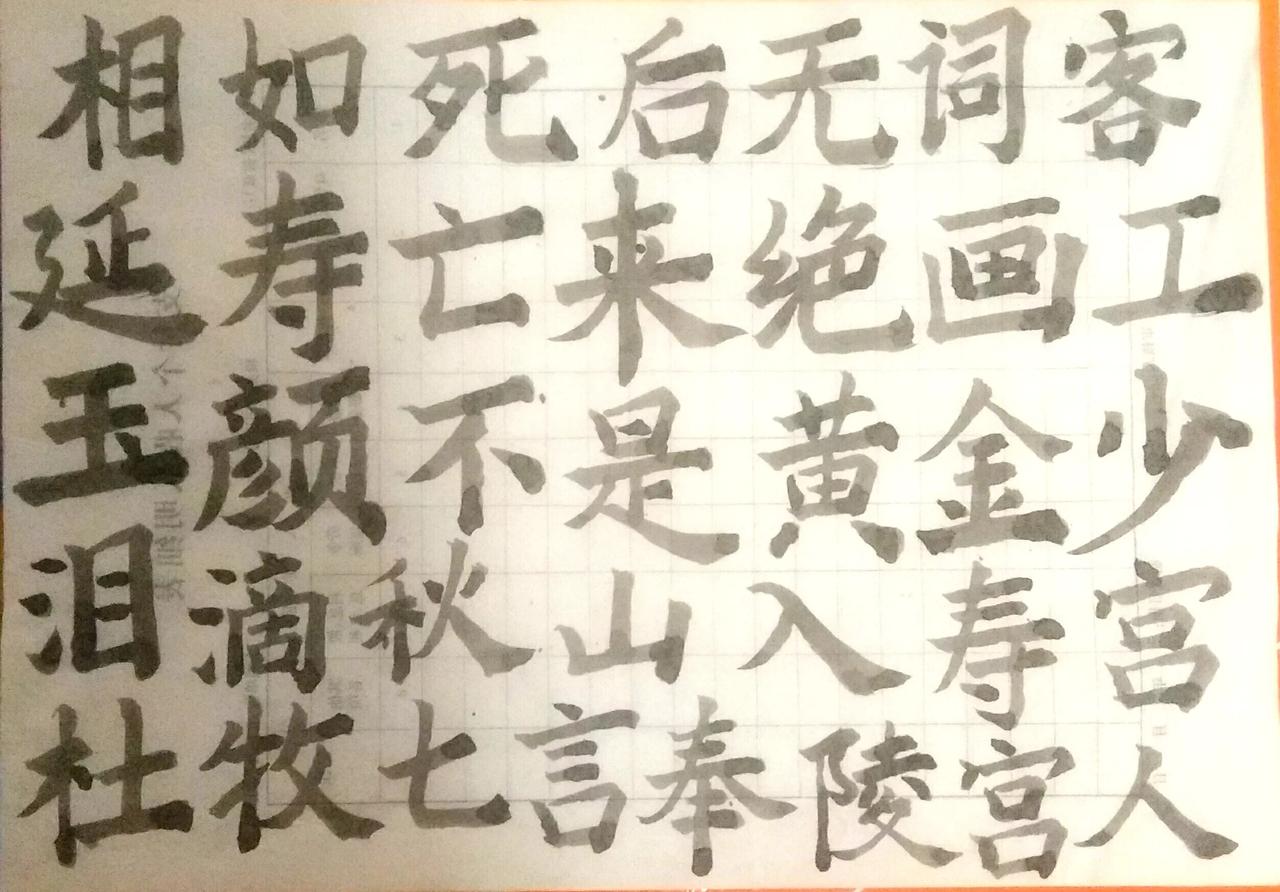 相如死后无词客
延寿亡来绝画工
玉颜不是黄金少
泪滴秋山入寿宫
杜牧七言奉陵宫人